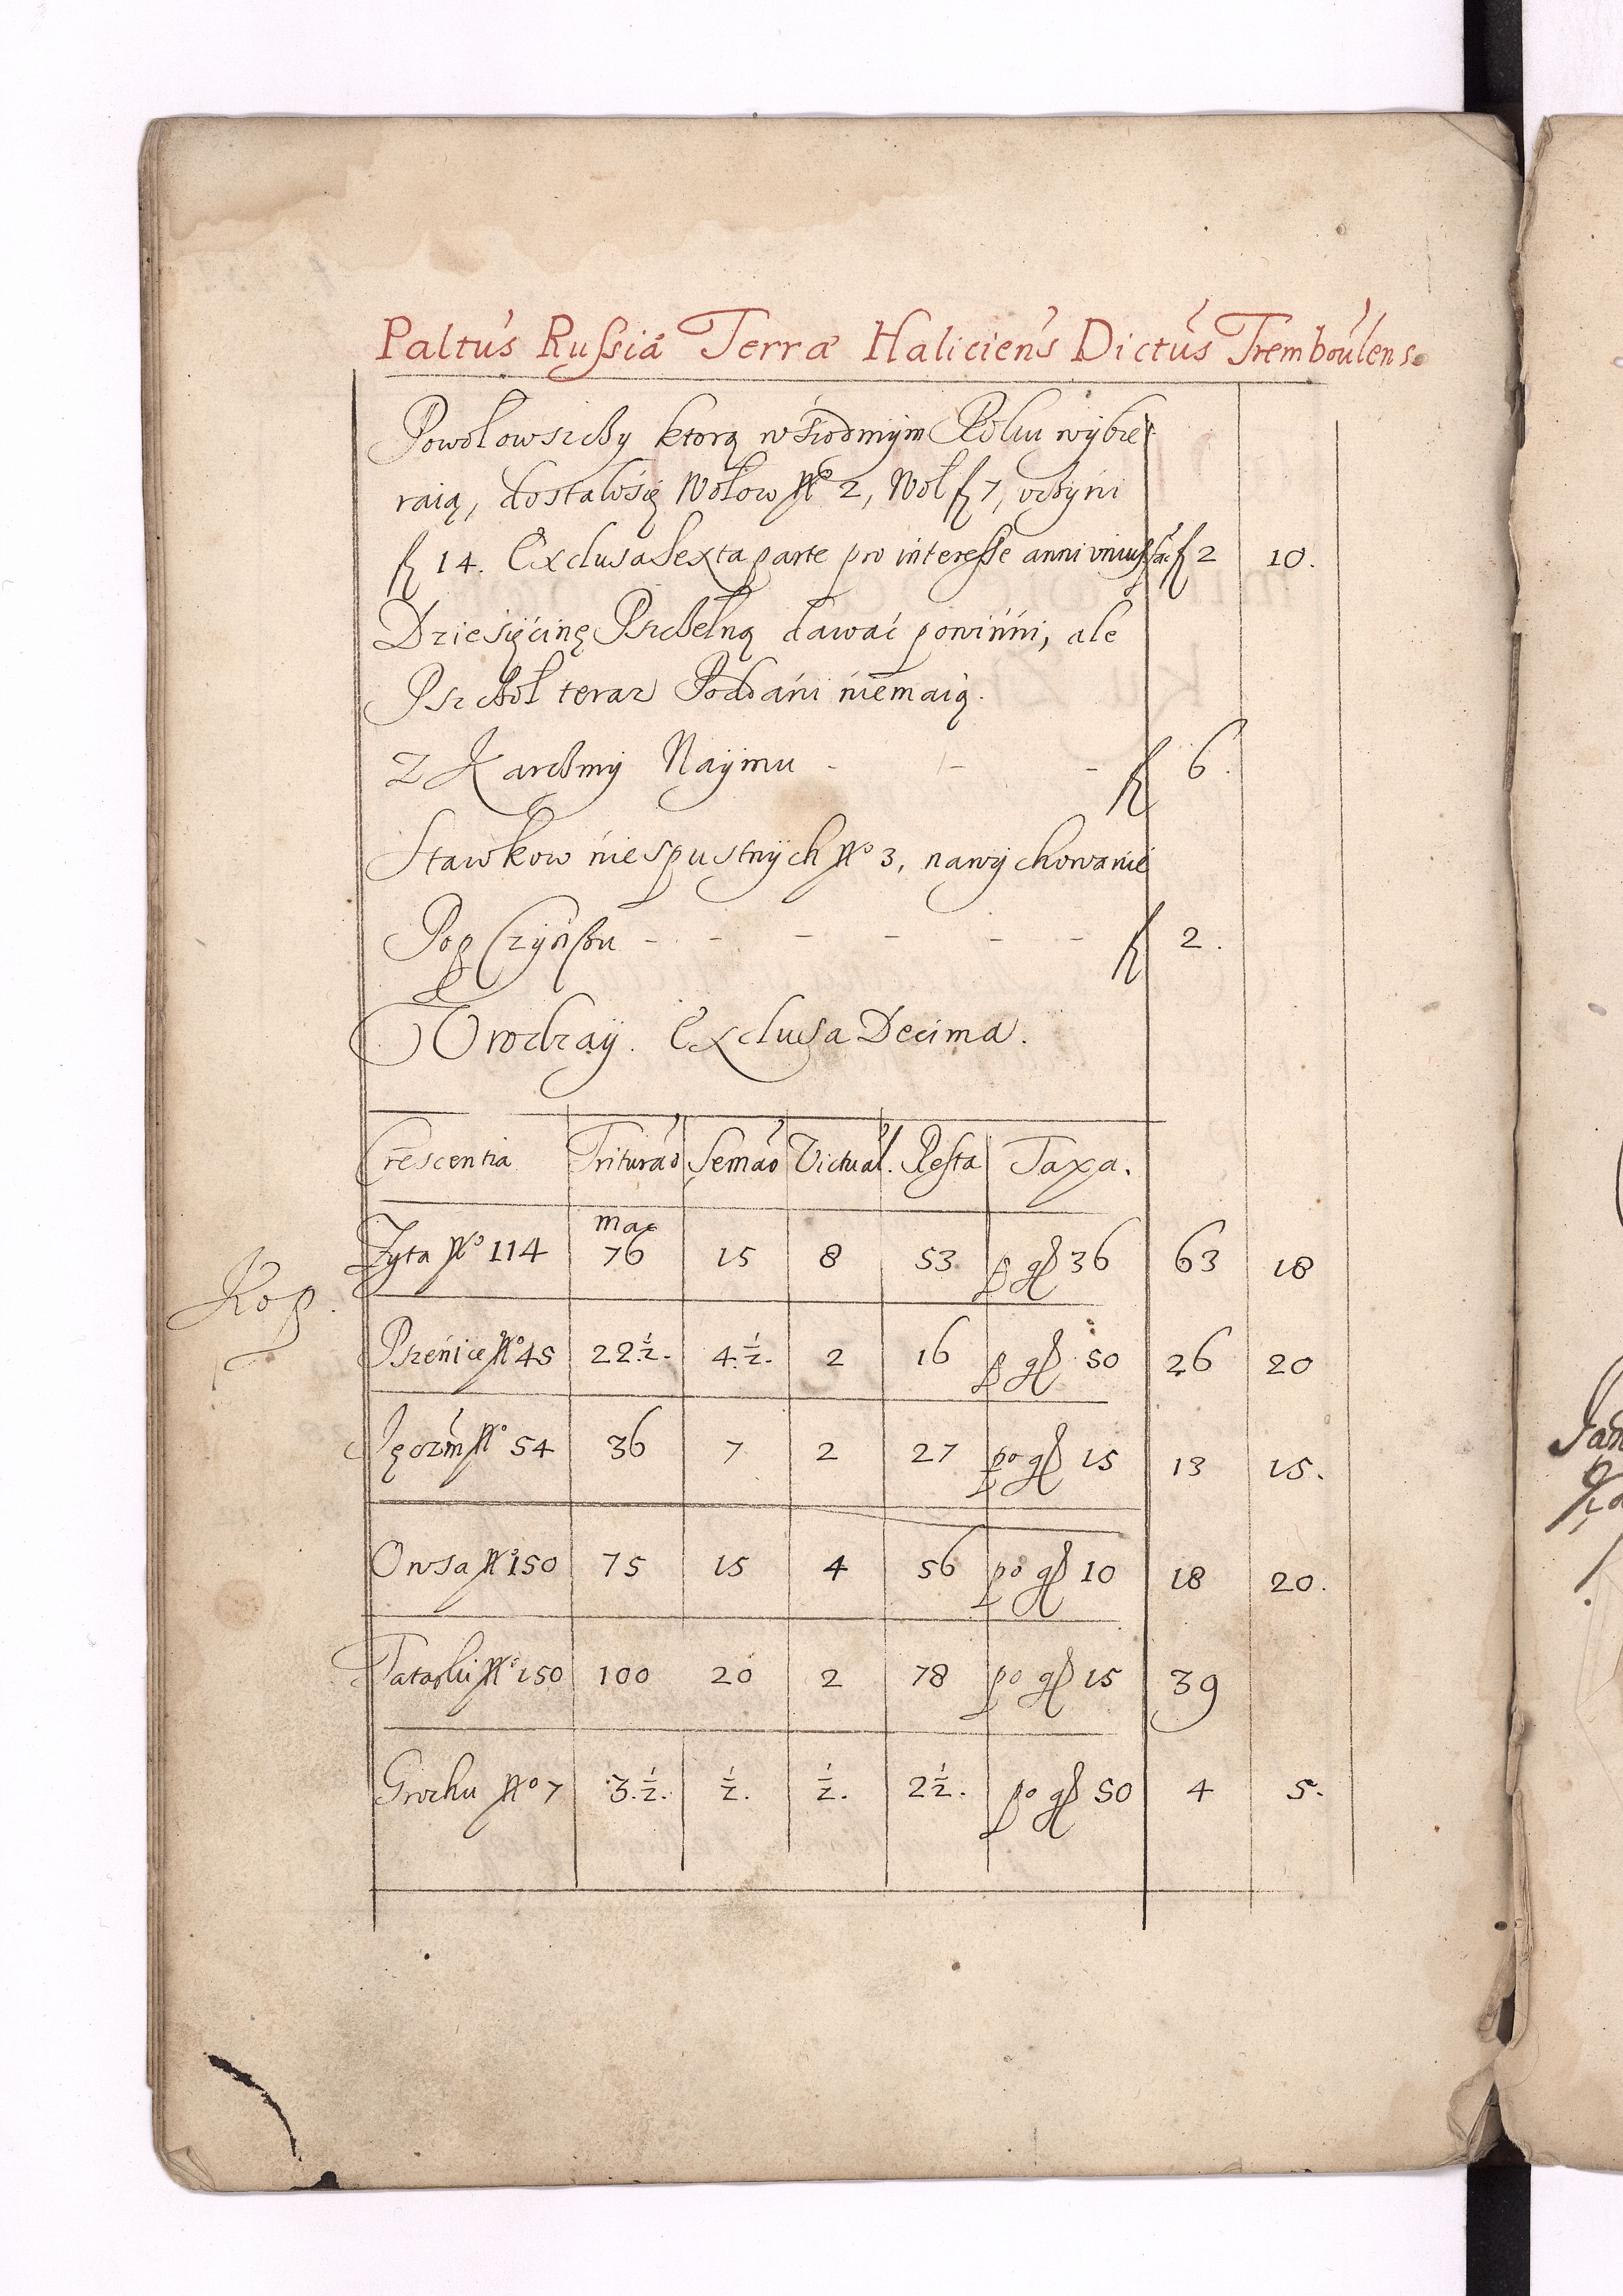 Paltus Russiæ Terræ Haliciens Dictus Tremboulens
Powołowszczyzny ktorą w siodmym Roku wybie
raią, dostało się Wołow No 2, Woł fl 7, uczyni
fl 14. Exclusa Sexta parte pro interesse anni unius fac fl 2 10.
Dziesięcinę Pszczelną dawać powinni, ale
Pszczoł teraz Poddani niemaią.
Z Karczmy Naymu - - - fl 6.
Stawkow niespustnych No 3, na wychowanie
Pop Czynszu - - - - - - fl 2.
Urodzay. Exclusa Decima.
Crescentia Triturao Semao Victual. Resta Taxa.
mac
Zyta No 114 76 15 8 53 p gl 36 63 18
Kop.
Pszenice No 45 22 1/2. 4. 1/2. 2 16 p gl 50 26 20
Jęczm No 54 36 7 2 27 po gl 15 13 15.
Owsa No 150 75 15 4 56 po gl 10 18 20.
Tatarki No 150 100 20 2 78 po gl 15 39
Grochu No 7 3. 1/2. 1/2. 1/2. 2 1/2. po gl 50 4 5.